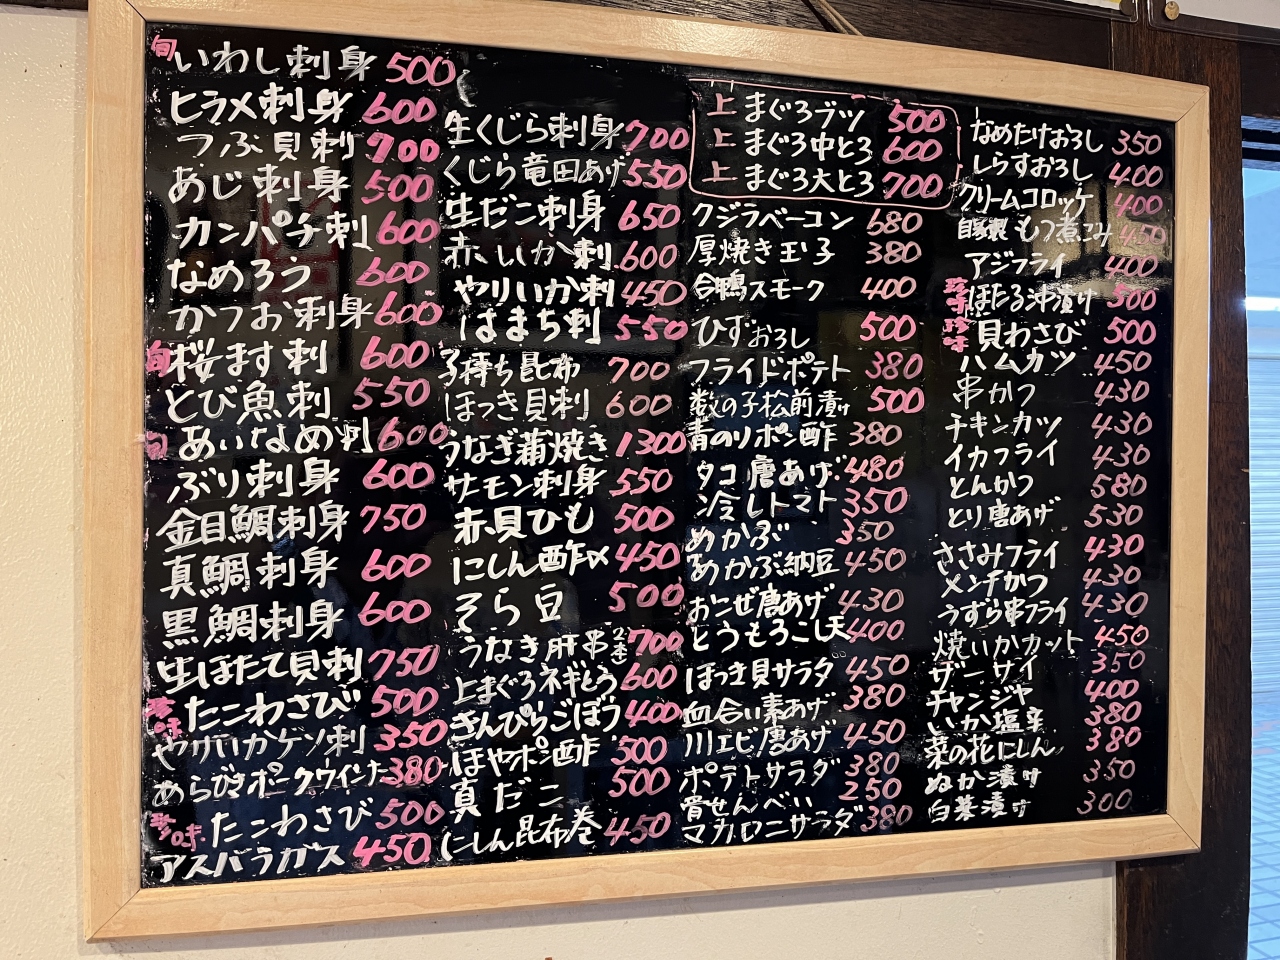 旬 いわし刺身 500
ヒラメ刺身 600
つぶ貝刺 700
あじ刺身 500
カンパチ刺 600
なめろう 600
かつお刺身 600
旬 桜ます刺 600
とび魚刺 550
旬 あいなめ刺 600
ぶり刺身 600
金目鯛刺身 750
真鯛刺身 600
黒鯛刺身 600
生ほたて貝刺 750
珍味 たこわさび 500
やりいかゲソ刺 350
あらびきポークウインナー 380
珍味 たこわさび 500
アスパラガス 450
生くじら刺身 700
くじら竜田あげ 550
生だこ刺身 650
赤いか刺 600
やりいか刺 450
はまち刺 550
子持ち昆布 700
ほっき貝刺 600
うなぎ蒲焼き 1300
サーモン刺身 550
赤貝ひも 500
にしん酢〆 450
そら豆 500
うなぎ肝串 2本 700
上まぐろネギとろ 600
きんぴらごぼう 400
ほやポン酢 500
真だこ 500
にしん昆布巻 450
上 まぐろブツ 500
上 まぐろ中とろ 600
上 まぐろ大とろ 700
クジラベーコン 680
厚焼き玉子 380
合鴨スモーク 400
ひずおろし 500
フライドポテト 380
数の子松前漬け 500
青のりポン酢 380
タコ唐あげ 480
冷しトマト 350
めかぶ 350
めかぶ納豆 450
おこぜ唐あげ 430
とうもろこし天 400
ほっき貝サラダ 450
血合い素あげ 380
川エビ唐あげ 450
ポテトサラダ 380
骨せんべい 250
マカロニサラダ 380
なめたけおろし 350
しらすおろし 400
クリームコロッケ 400
自家製 もつ煮こみ 450
アジフライ 400
珍味 ほたる沖漬け 500
珍味 貝わさび 500
ハムカツ 450
串かつ 430
チキンカツ 430
イカフライ 430
とんかつ 580
とり唐あげ 530
ささみフライ 430
メンチかつ 430
うずら串フライ 430
焼いかカット 450
ザーサイ 350
チャンジャ 400
いか塩辛 380
菜の花にしん 380
ぬか漬け 350
白菜漬け 300